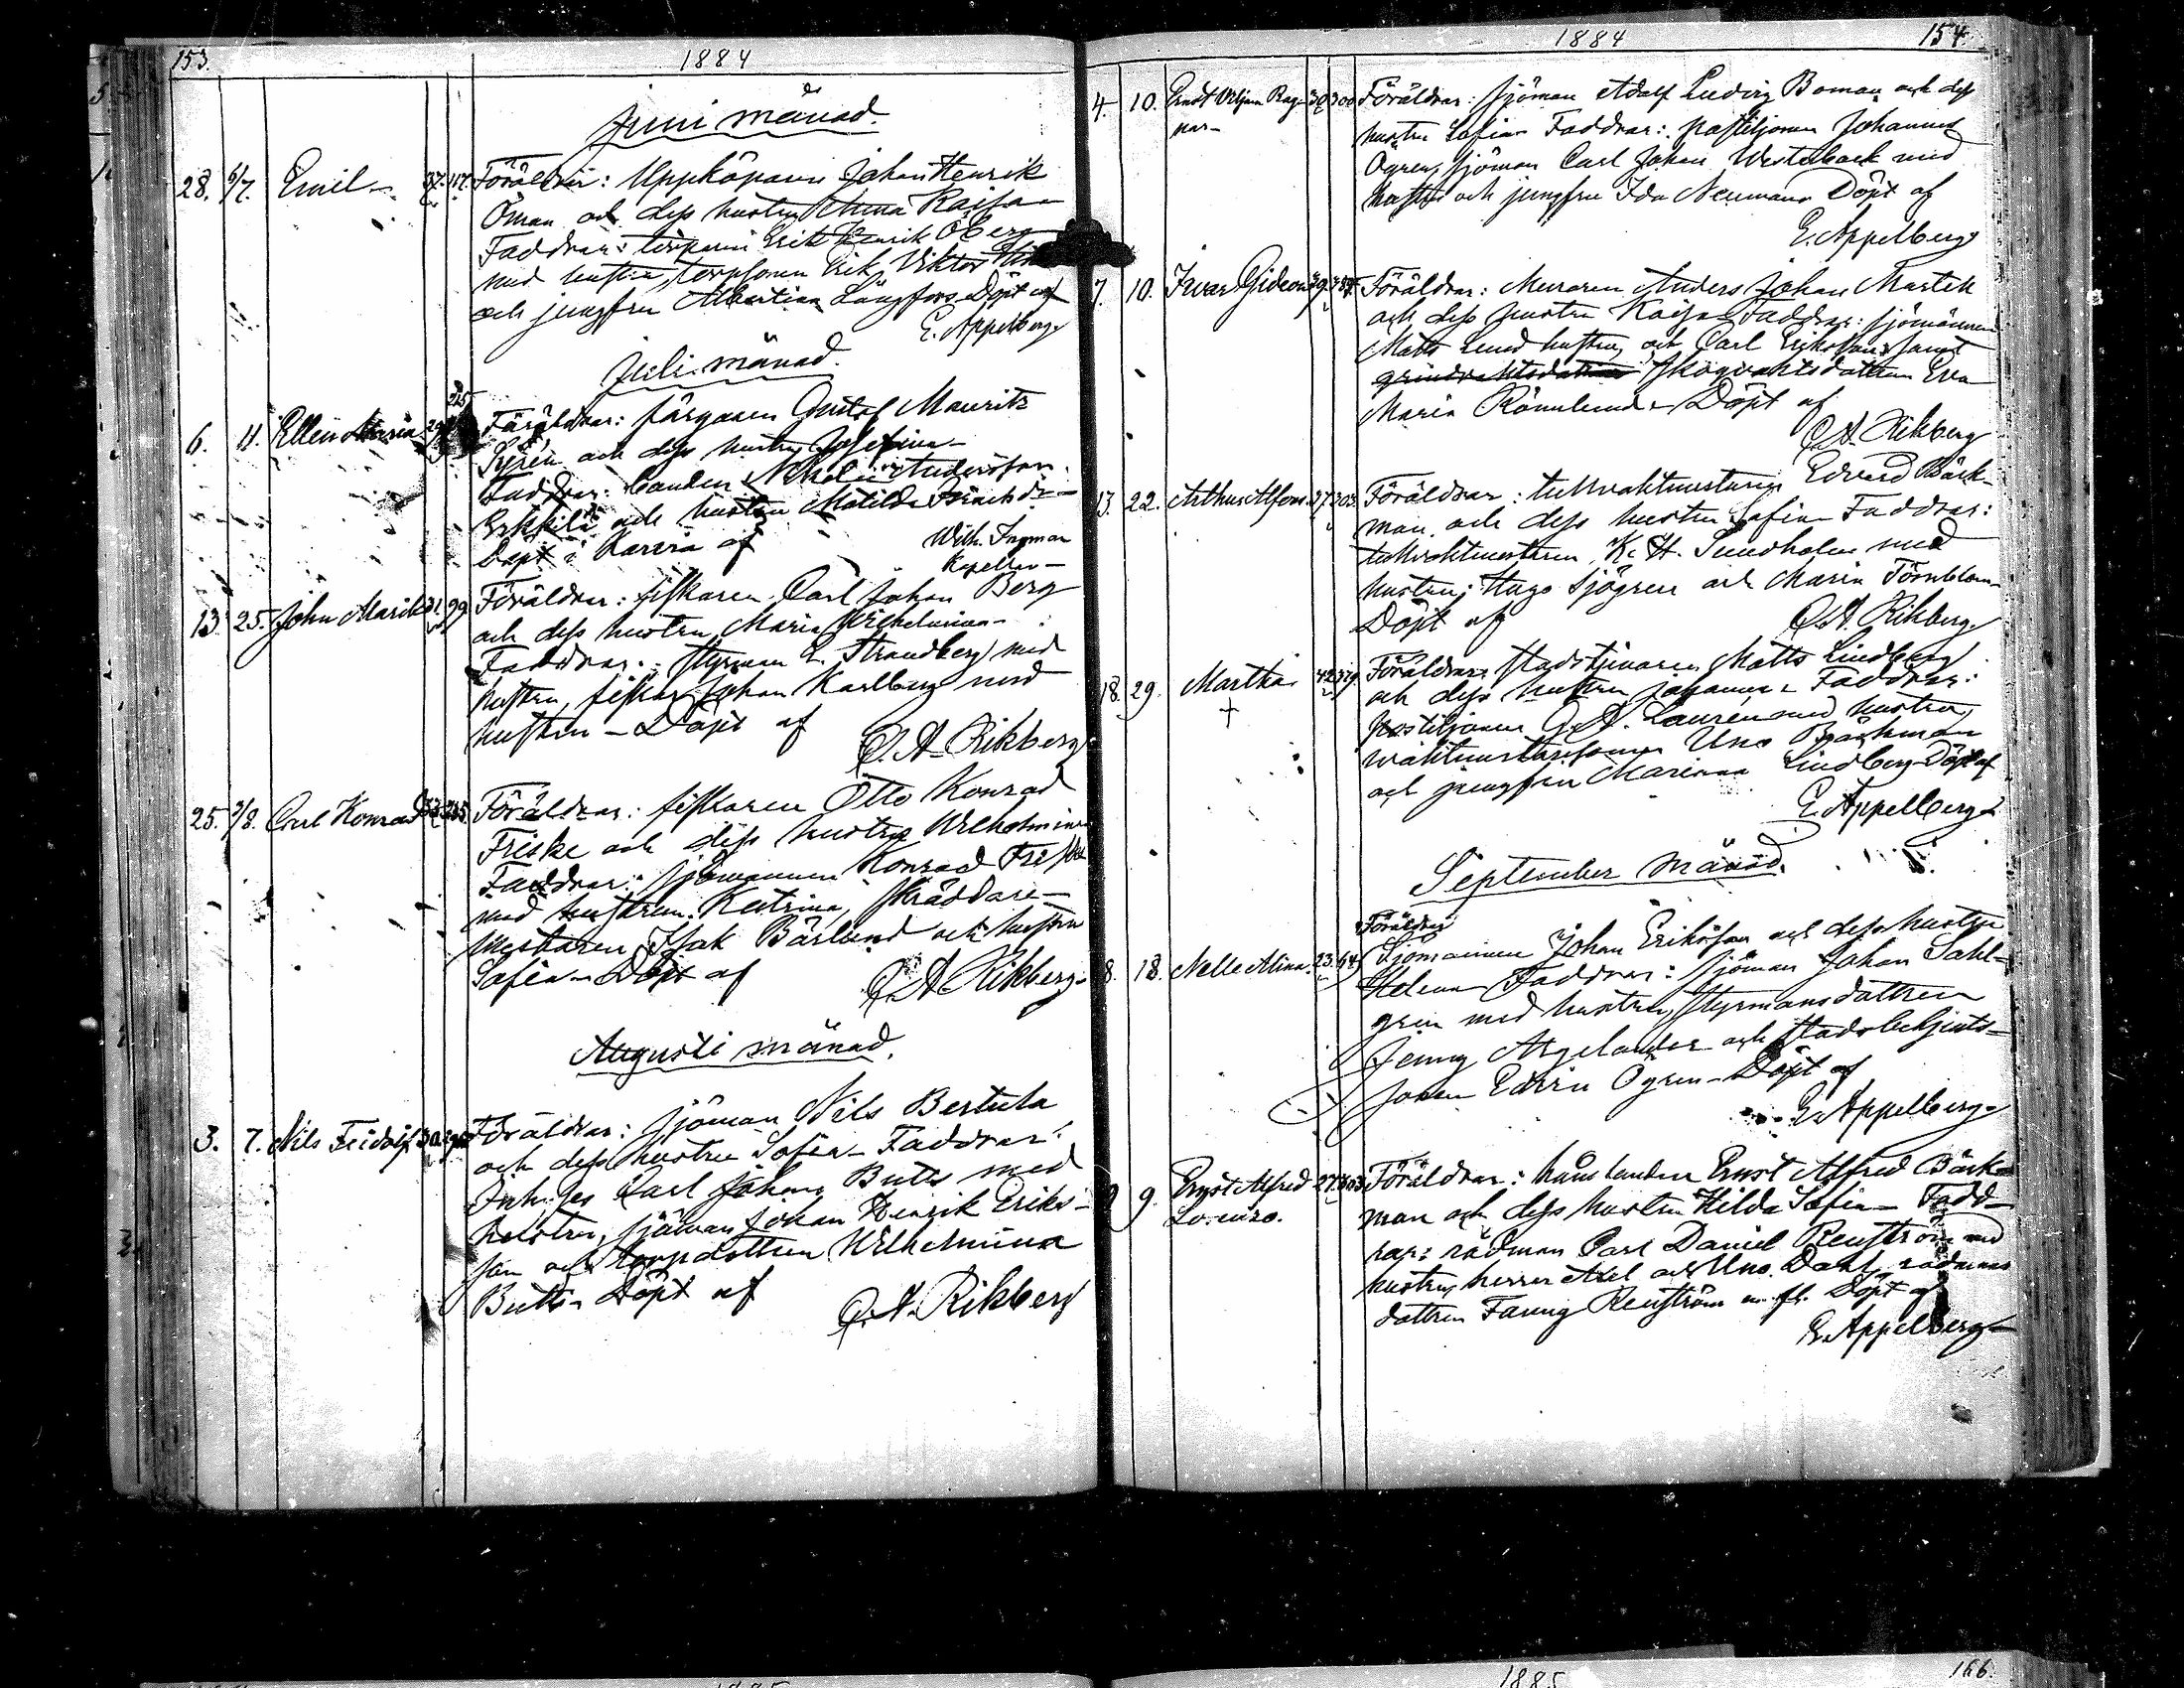 153.
1884
Juni månad.
28. 6/7. Emil 37. 117. Föräldrar: Uppköparen Johan Henrik
Öman och dess hustru Anna Kajsa
Faddrar: torparen Erik Henrik Öberg
med hustru, torpsonen Erik Viktor
och jungfru Albertina Långfors Döpt af
E. Appelberg
Juli månad.
225
6. 11. Ellen Maria 29 Föräldrar: färgaren Gustaf Mauritz
Syrén och dess hustru Josefina
Faddrar: bonden Nikolai Andersson
Erkkilä och hustru Matilda
Döpt i Karvia af Wilh. Ingman
Kapellan
13. 25. John Marik 31. 99 Föräldrar: fiskaren Carl Johan Berg
och dess hustru Maria Wilhelmina
Faddrar: styrman E. Strandberg med
hustru, fiskar Johan Karlberg med
hustru - Döpt af
C. A. Rikberg
25. 3/8. Carl Konrad 33. 235. Föräldrar: fiskaren Otto Konrad
Friske och dess hustru Wilhelmina
Faddrar: sjömannen Konrad Friske
med hustrun Katrina, skräddare-
mästaren Isak Bärlund och hustru
Sofia - Döpt af C. A. Rikberg
Augusti månad.
3. 7. Nils Fridolf 30. Föräldrar: sjöman Nils Bertula
och dess hustru Sofia - Faddrar:
Inh:ses Carl Johan Butts med
hustru, sjöman Johan Henrik Eriks-
son och torpdottren Wilhelmina
Butts - Döpt af C. A. Rikberg
1884
154.
4. 10. Ernst Viljam Rag- 30 300 Föräldrar: sjöman Adolf Ludvig Boman och dess
nar- hustru Sofia Faddrar: postiljonen Johannes
Ögren, sjöman Carl Johan Westerback med
hustru och jungfru Ida Neumann Döpt af
E. Appelberg
7. 10. Ivar Gideon 29. Föräldrar: Muraren Anders Johan Martek
och dess hustru Kajsa Faddrar: sjömännen
Matts Lund hustru, och Carl Eriksson samt
skogvaktsdottren Eva
Maria Rönnlund - Döpt af
C. A. Rikberg
13. 22. Arthur Alfons 27. 303. Föräldrar: tullvaktmästaren Edvard Bäck-
man och dess hustru Sofia Faddrar:
tullvaktmästaren K. H. Sundholm med
hustru; Hugo Sjögren och Maria Törnblom
Döpt af C. A. Rikberg
18. 29. Martha 42 Föräldrar: stadstjenaren Matts Lindberg
† och dess hustru Johanna - Faddrar:
postiljonen G. A. Laurén med hustru,
vaktmästarsonen Uno Bäckman
och jungfru Marianna Lindberg - Döpt af
E. Appelberg
September månad.
Föräldrar
8. 18. Nelle Alina 23. 64 Sjömannen Johan Eriksson och dess hustru
Helena Faddrar: sjöman Johan Sahl-
gren med hustru, styrmansdottren
Jenny Argelander och stadsbetjents-
sonen Edvin Ögren - Döpt af
E. Appelberg
9. Ernst Alfred 27. 303 Föräldrar: handlanden Ernst Alfred Bäck-
Lorenzo. man och dess hustru Hilda Sofia - Fadd-
rar: rådman Carl Daniel Renström med
hustru, herrar Axel och Uno Dahl, rådmans
dottren Fanny Renström m. fl. Döpt af
E. Appelberg
1885
1885
166.